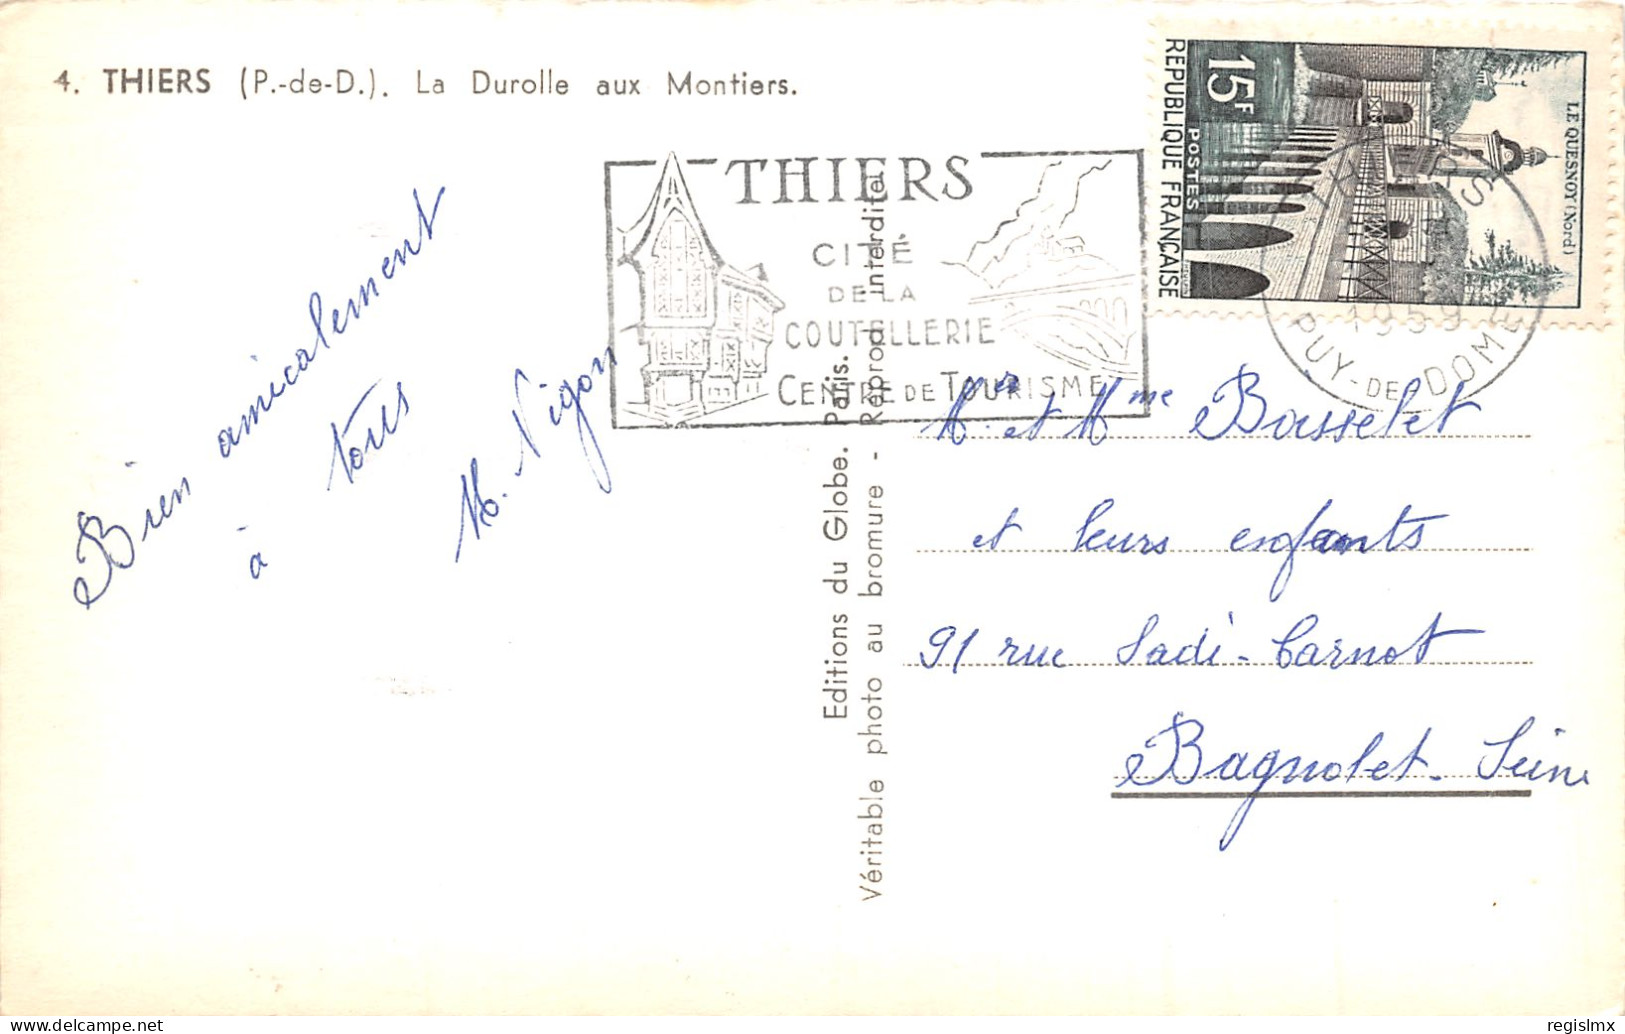 4. THIERS (P.-de-D.). La Durolle aux Montiers.
THIERS
CITÉ
DE LA
COUTELLERIE
CENTRE DE TOURISME
15F
POSTES
REPUBLIQUE FRANÇAISE
LE QUESNOY (Nord)
THIERS
1959
PUY-DE-DOME
Bien amicalement
à tous
M. Vigon
Editions du Globe. Paris.
Véritable photo au bromure - Reprod interdite
Mr et Mme Basselet
et leurs enfants
91 rue Sadi-Carnot
Bagnolet. Seine
delcampe.net
regislmx